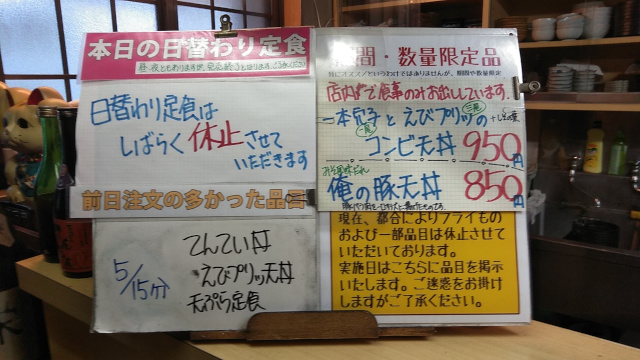 本日の日替わり定食
日替わり定食は
しばらく休止させて
いただきます
前日注文の多かった品
5/15分
てんてい丼
えびプリッツ天丼
天ぷら定食
期間・数量限定品
店内で食事のみお出ししています。
一本穴子とえびプリッツの
コンビ天丼 950円
俺の豚天丼 850円
現在、都合によりフライもの
および一部品目は休止させて
いただいております。
実施日はこちらに品目を掲示
いたします。ご迷惑をお掛け
しますがご了承ください。